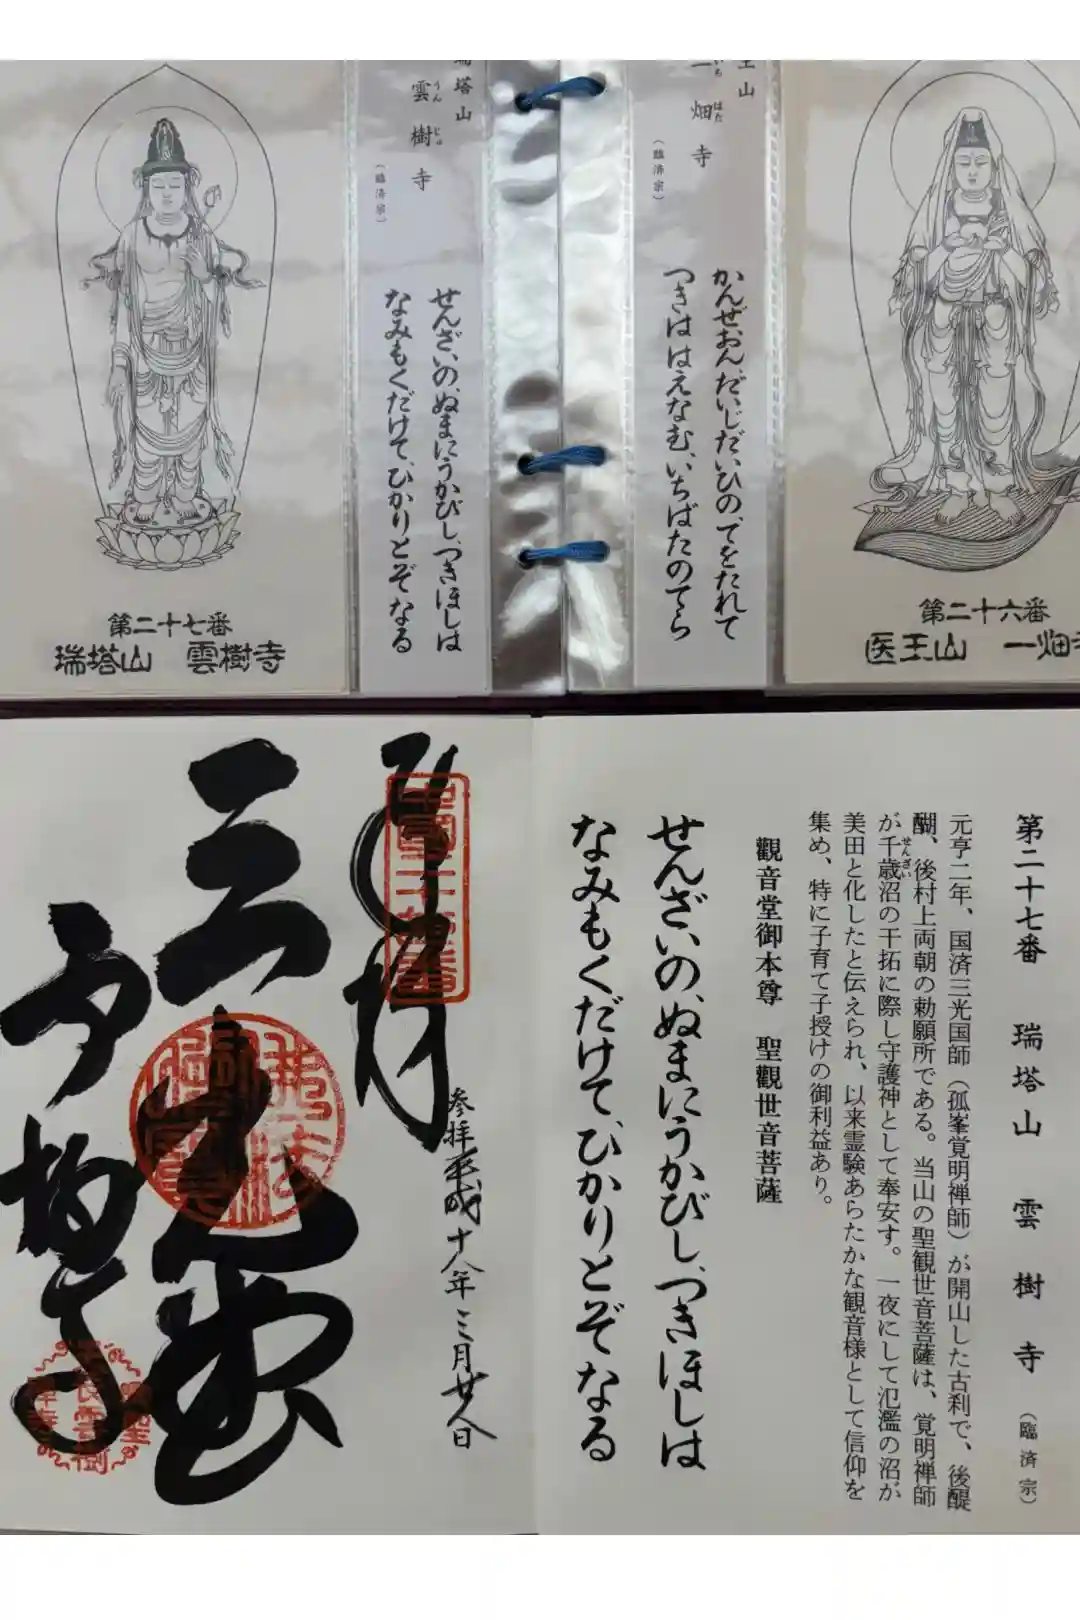 王山
一畑寺
いち
はた
（臨済宗）
かんぜおん、だいじだいひの、てをたれて
つきははえなむ、いちばたのてら
第二十六番
医王山 一畑寺
瑞塔山
雲樹寺
うん
じゅ
（臨済宗）
せんざいの、ぬまにうかびし、つきほしは
なみもくだけて、ひかりとぞなる
第二十七番
瑞塔山 雲樹寺
第二十七番 瑞塔山 雲樹寺（臨済宗）
元亨二年、国済三光国師（孤峯覚明禅師）が開山した古刹で、後醍
醐、後村上両朝の勅願所である。当山の聖観世音菩薩は、覚明禅師
が千歳沼の干拓に際し守護神として奉安す。一夜にして氾濫の沼が
せんざい
美田と化したと伝えられ、以来霊験あらたかな観音様として信仰を
集め、特に子育て子授けの御利益あり。
觀音堂御本尊 聖觀世音菩薩
せんざいの、ぬまにうかびし、つきほしは
なみもくだけて、ひかりとぞなる
参拝平成十八年三月廿八日
三光